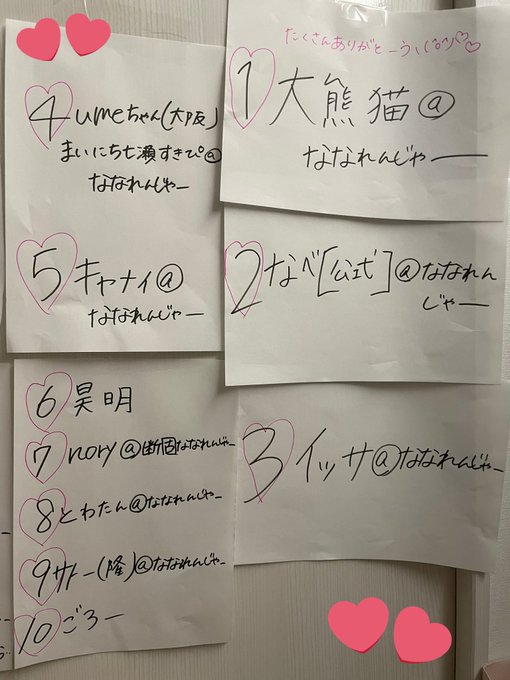 たくさんありがとーう\(^o^)/♡♡
1 大熊猫@
ななれんじゃー
2 なべ[公式]@ななれん
じゃー
3 イッサ@ななれんじゃー
4 umeちゃん(大阪)
まいにち七瀬すきぴ@
ななれんじゃー
5 キャナィ@
ななれんじゃー
6 昊明
7 nory@断固ななれんじゃー
8 とわたん@ななれんじゃー
9 サトー(隆)@ななれんじゃー
10 ごろー